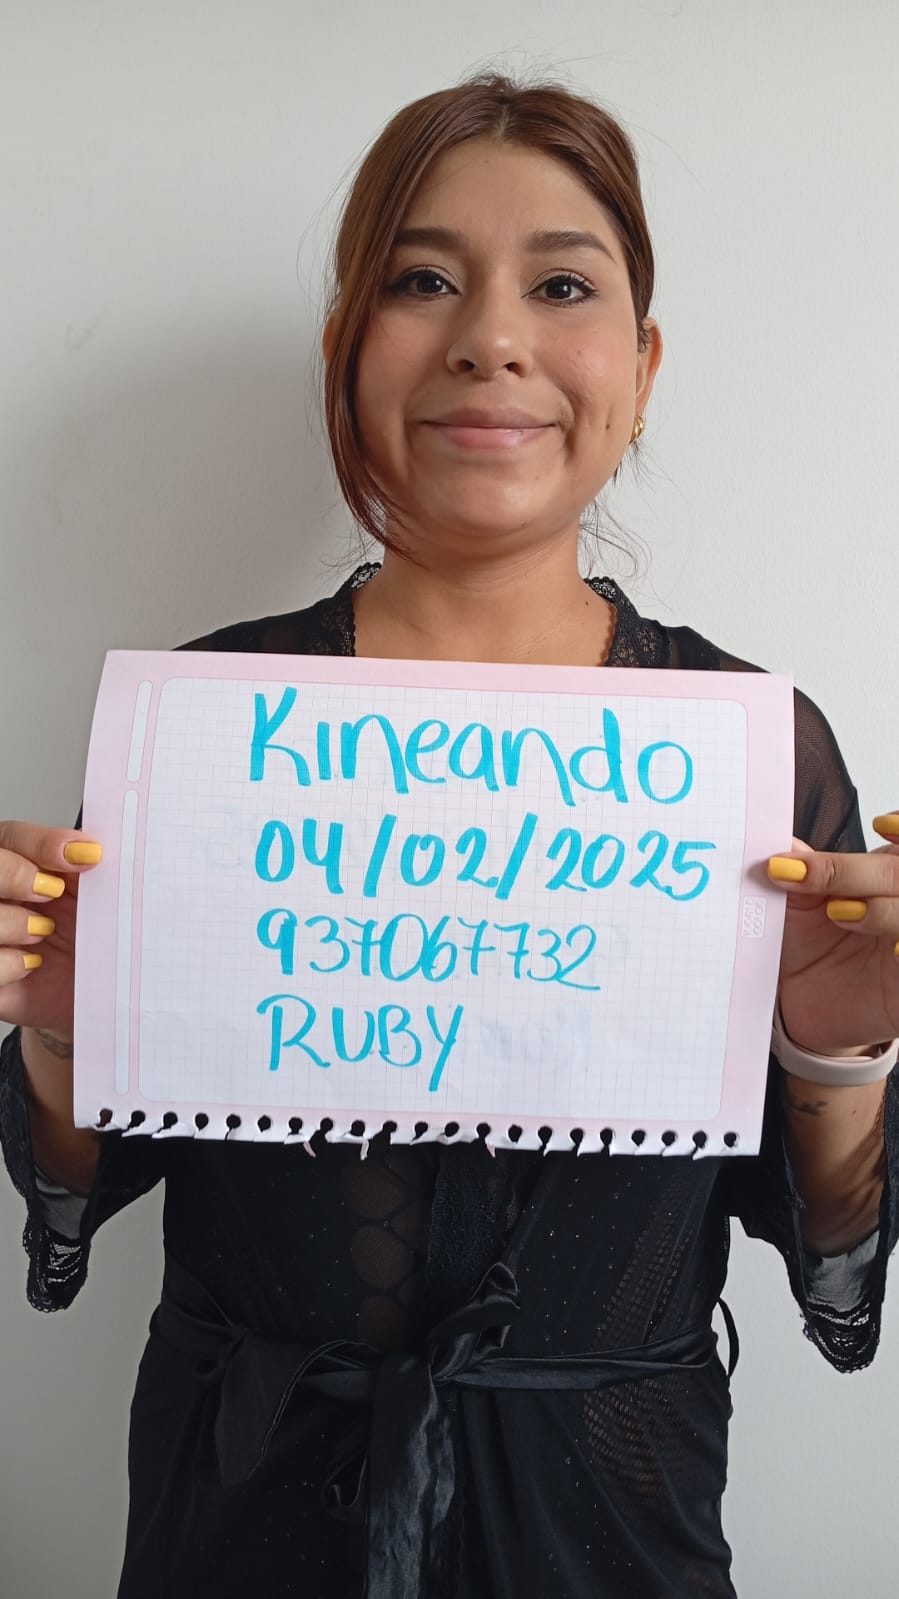 Kineando
04/02/2025
937067732
RUBY